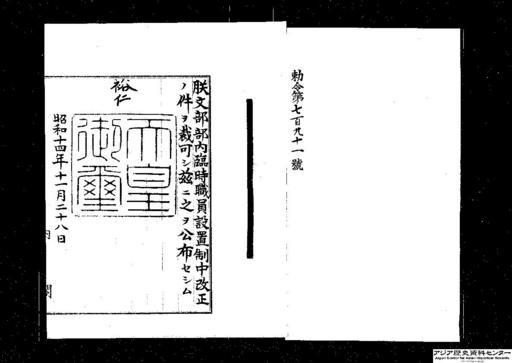 勅令第七百九十一號
朕文部部内臨時職員設置制中改正
ノ件ヲ裁可シ茲ニ之ヲ公布セシム
裕仁
天皇
御璽
昭和十四年十一月二十八日
内閣
アジア歴史資料センター
Japan Center for Asian Historical Records